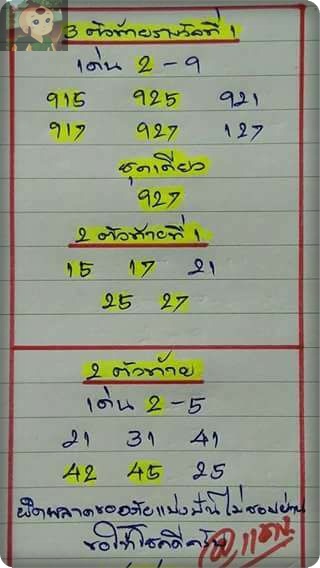 3 ตัวท้ายรางวัลที่ 1
เด่น 2 - 9
915 925 921
917 927 127
ชุดเดียว
927
2 ตัวท้ายที่ 1
15 17 21
25 27
2 ตัวท้าย
เด่น 2 - 5
21 31 41
42 45 25
ผิดพลาดขออภัยแบ่งปันไม่ชอบผ่าน
ขอให้โชคดีครับ